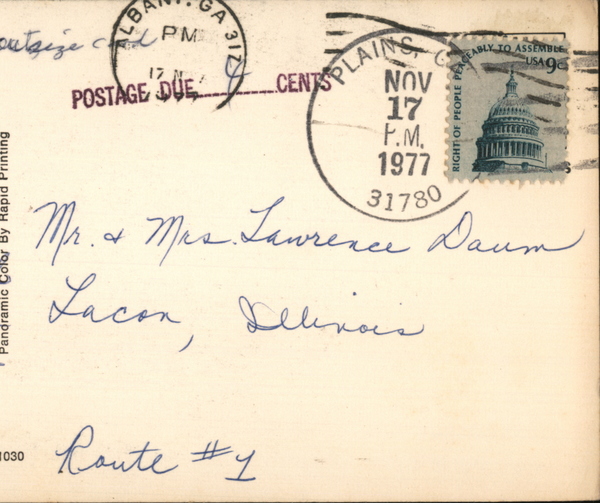 ALBANY, GA 317
PM
17 N
outsize card
POSTAGE DUE CENTS
PLAINS, G
NOV
17
P.M.
1977
31780
RIGHT OF PEOPLE PEACEABLY TO ASSEMBLE
USA 9c
Mr. & Mrs. Lawrence Daum
Lacon, Illinois
Route #1
Pandramic Color By Rapid Printing
1030